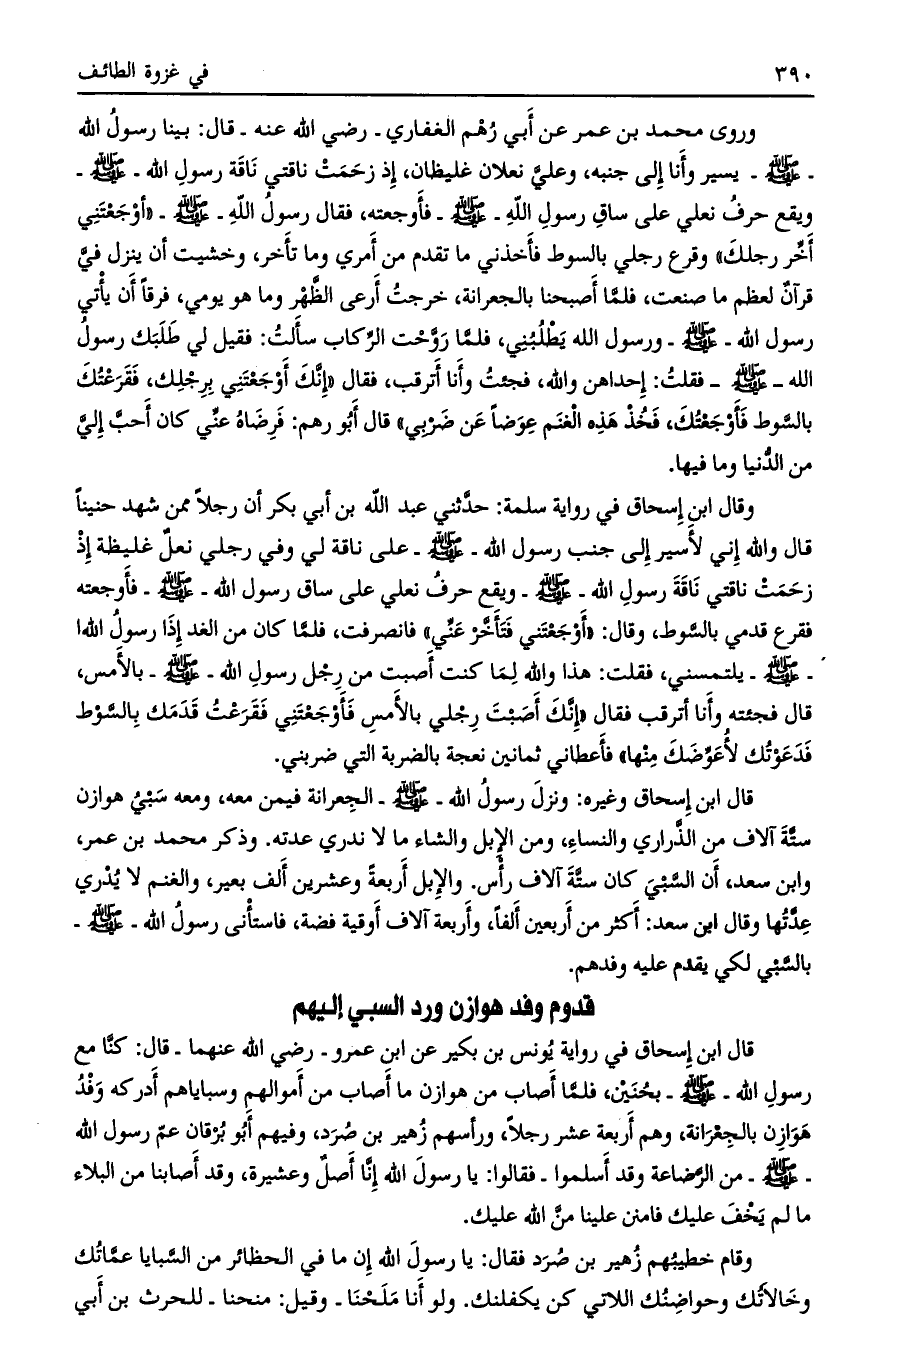 ٣٩٠ في غزوة الطائف
وروى محمد بن عمر عن أَبي رُهْم الغفاري ـ رضي الله عنه ـ قال: بينا رسولُ الله
ـ ﷺ ـ يسير وأَنا إِلى جنبه، وعليَّ نعلان غليظان، إِذ زحَمَتْ ناقتي نَاقَة رسولِ الله ـ ﷺ ـ
ويقع حرفُ نعلي على ساقِ رسولِ اللَّهِ ـ ﷺ ـ فأَوجعته، فقال رسولُ اللَّهِ ـ ﷺ ـ «أوْجَعْتَنِي
أَخِّر رجلكَ» وقرع رجلي بالسوط فأَخذني ما تقدم من أَمري وما تأَخر، وخشيت أن ينزل فيَّ
قرآنٌ لعظم ما صنعت، فلمَّا أَصبحنا بالجعرانة، خرجتُ أرعى الظَّهْر وما هو يومي، فرقاً أَن يأْتي
رسول الله ـ ﷺ ـ ورسول الله يَطْلُبُنِي، فلمَّا رَوَّحْت الرِّكاب سأَلتُ: فقيل لي طَلَبَك رسولُ
الله ـ ﷺ ـ فقلتُ: إِحداهن والله، فجئتُ وأَنا أَترقب، فقال «إِنَّكَ أَوْجَعْتَنِي بِرِجْلِك، فَقَرَعْتُكَ
بالسَّوط فَأَوْجَعْتُكَ، فَخُذْ هَذِه الْغَنَم عِوَضاً عَن ضَرْبِي» قال أَبُو رهم: فَرِضَاهُ عنِّي كان أَحبَّ إِليَّ
من الدُّنيا وما فيها.
وقال ابن إِسحاق في رواية سلمة: حدَّثني عبد اللّه بن أَبي بكر أن رجلاً ممن شهد حنيناً
قال والله إِني لأَسير إِلى جنب رسول الله ـ ﷺ ـ على ناقة لي وفي رجلي نعلٌ غليظة إِذْ
زحَمَتْ ناقتي نَاقَةَ رسولِ الله ـ ﷺ ـ ويقع حرفُ نعلي على ساق رسول الله ـ ﷺ ـ فأَوجعته
فقرع قدمي بالسَّوط، وقال: «أَوْجَعْتَني فَتَأَخَّرْ عَنِّي» فانصرفت، فلمَّا كان من الغد إِذَا رسولُ اللها
ـ ﷺ ـ يلتمسني، فقلت: هذا والله لِمَا كنت أَصبت من رِجْل رسولِ الله ـ ﷺ ـ بالأَمس،
قال فجئته وأَنا أترقب فقال «إِنَّكَ أَصَبْتَ رِجْلي بالأمسِ فَأَوْجَعْتَنِي فَقَرَعْتُ قَدَمَك بِالسَّوْط
فَدَعَوْتُك لأُعَوِّضَكَ مِنْها» فأَعطاني ثمانين نعجة بالضربة التي ضربني.
قال ابن إِسحاق وغيره: ونزلَ رسولُ الله ـ ﷺ ـ الجِعرانة فيمن معه، ومعه سَبْيُ هوازن
ستَّةَ آلاف من الذَّراري والنساءِ، ومن الإِبل والشاء ما لا ندري عدته. وذكر محمد بن عمر،
وابن سعد، أَن السَّبْيَ كان ستَّةَ آلاف رأْس. والإِبل أَربعةً وعشرين أَلف بعير، والغنم لا يُدْري
عِدَّتُها وقال ابن سعد: أَكثر من أَربعين أَلفاً، وأَربعة آلاف أَوقية فضة، فاستأْنى رسولُ الله ـ ﷺ ـ
بالسَّبْي لكي يقدم عليه وفدهم.
قدوم وفد هوازن ورد السبي إليهم
قال ابن إِسحاق في رواية يُونس بن بكير عن ابن عمرو ـ رضي الله عنهما ـ قال: كنَّا مع
رسولِ الله ـ ﷺ ـ بحُنَيْن، فلمَّا أَصاب من هوازن ما أَصاب من أَموالهم وسباياهم أَدركه وَفْدُ
هَوَازِن بالجِعْرَانة، وهم أَربعة عشر رجلاً، ورأسهم زُهير بن صُرَد، وفيهم أَبُو بُرْقان عمّ رسول الله
ـ ﷺ ـ من الرَّضاعة وقد أَسلموا ـ فقالوا: يا رسولَ الله إِنَّا أَصلٌ وعشيرة، وقد أَصابنا من البلاء
ما لم يَخْفَ عليك فامنن علينا منَّ الله عليك.
وقام خطيبُهم زُهير بن صُرَد فقال: يا رسولَ الله إِن ما في الحظائر من السَّبايا عمَّاتُك
وخَالاَتُك وحواضِنُك اللاتي كن يكفلنك. ولو أَنا مَلَحْنَا ـ وقيل: منحنا ـ للحرث بن أَبي